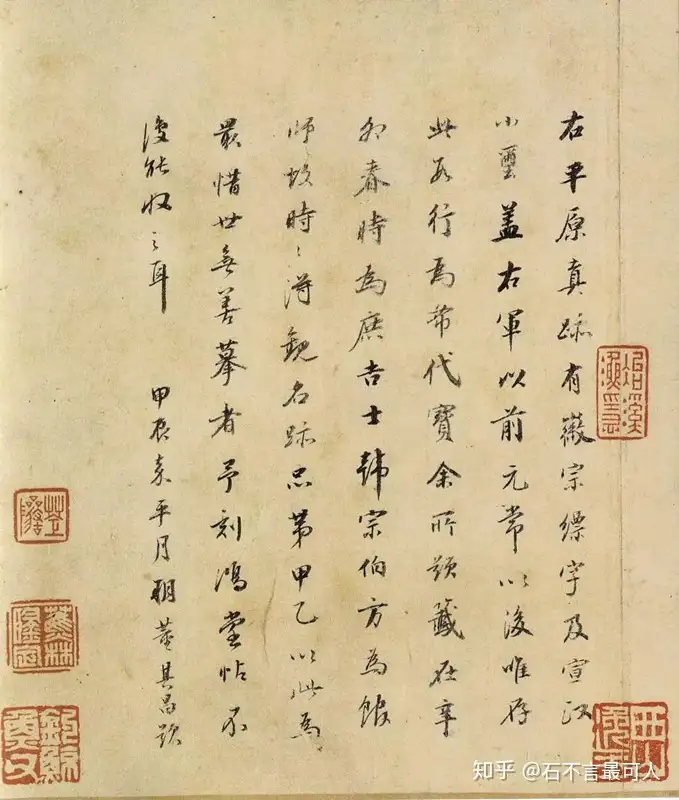 右平原真跡有徽宗縹字及宣政
小璽蓋右軍以前元常以後唯存
此數行為希代寶余所題籤在辛
卯春時為庶吉士韓宗伯方為館
師故時〻得觀名跡品第甲乙以此為
最惜世無善摹者予刻鴻堂帖不
復能收之耳 甲辰嘉平月朔董其昌題
知乎 @石不言最可人